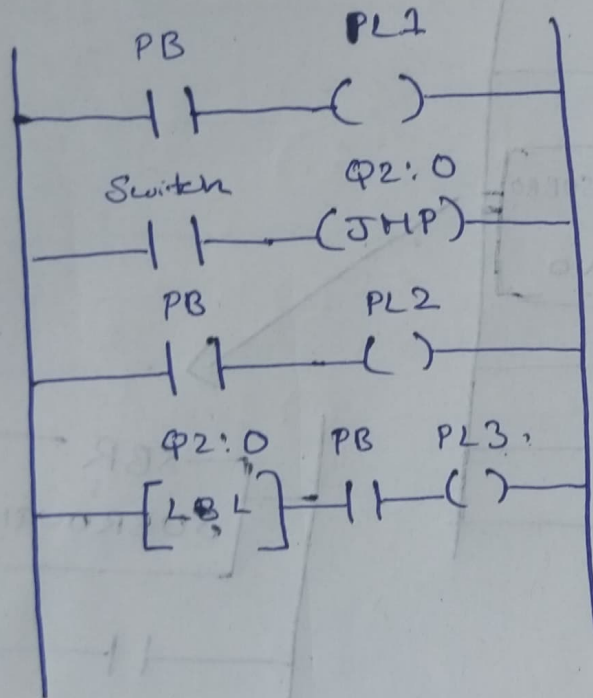 PB PL1
Switch Q2:0
(JMP)
PB PL2
Q2:0 PB PL3.
[LBL]